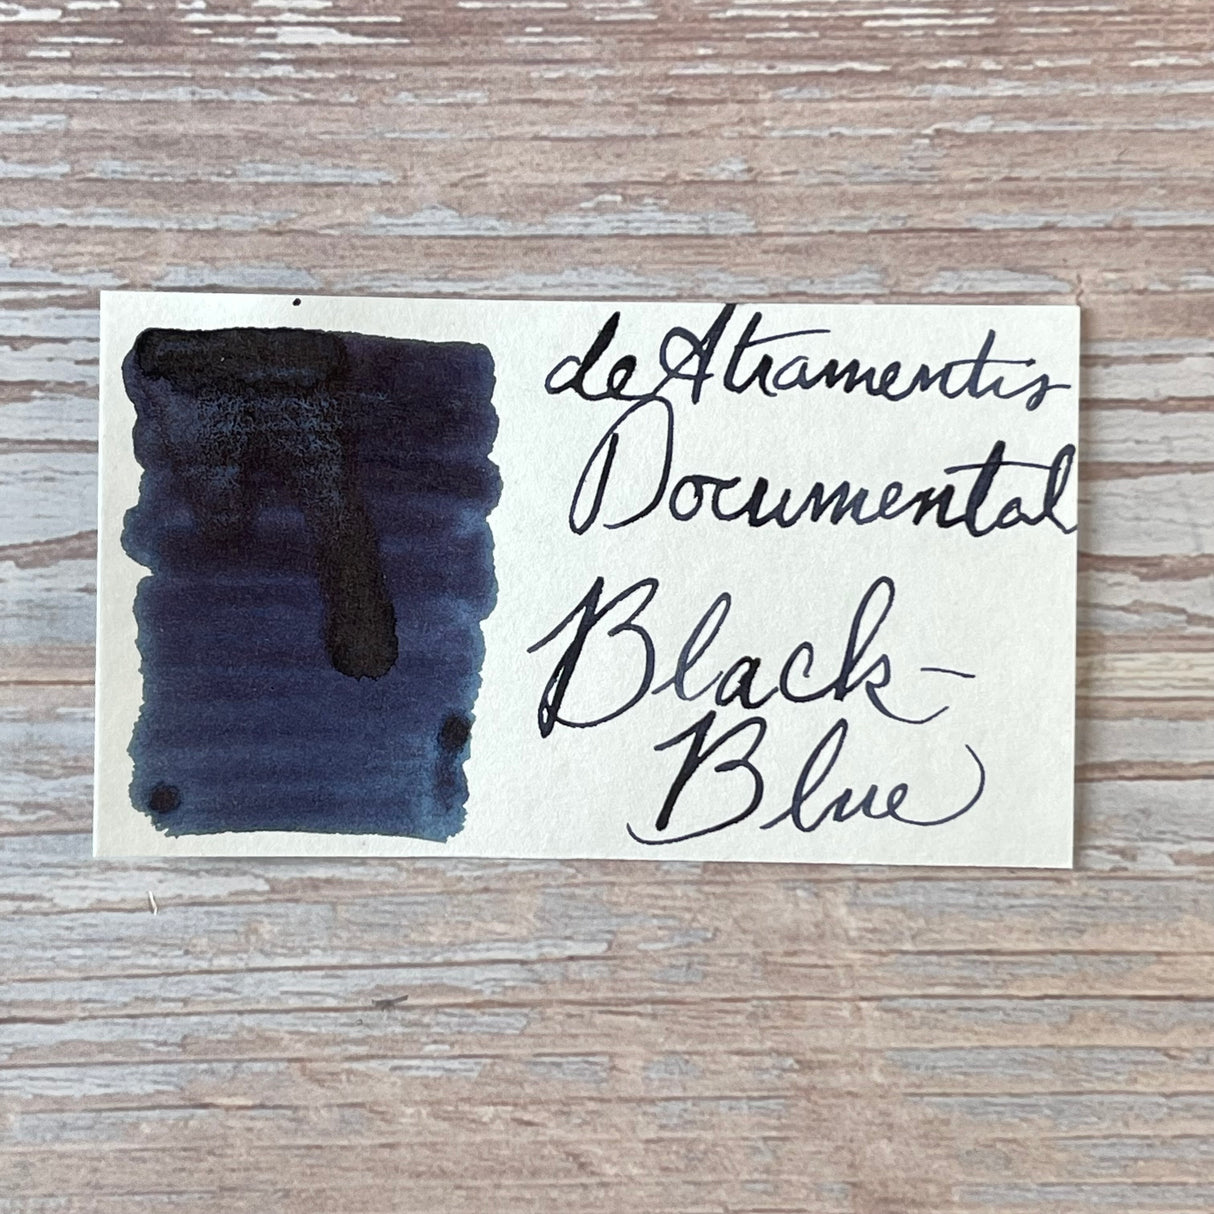 de Atramentis
Documental
Black-
Blue